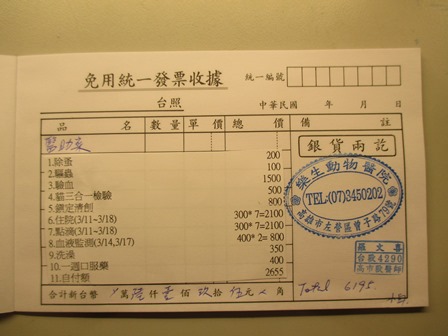 免用統一發票收據 統一編號
台照 中華民國 年 月 日
品名 數量 單價 總價 備註
銀貨兩訖
1.除蚤 200
2.驅蟲 100
3.驗血 1500
4.貓三合一檢驗 800
5.鎮定清創 800
6.住院(3/11~3/18) 300* 7=2100
7.點滴(3/11~3/18) 300* 7=2100
8.血液監測(3/14,3/17) 400* 2= 800
9.洗澡 350
10.一週口服藥 400
11.自付額 2655
樂生動物醫院
TEL:(07)3450202
高雄市左營區曾子路79號
台獸4290
高市獸醫師
合計新台幣 萬陸仟壹佰玖拾伍元 角 Total 6195.